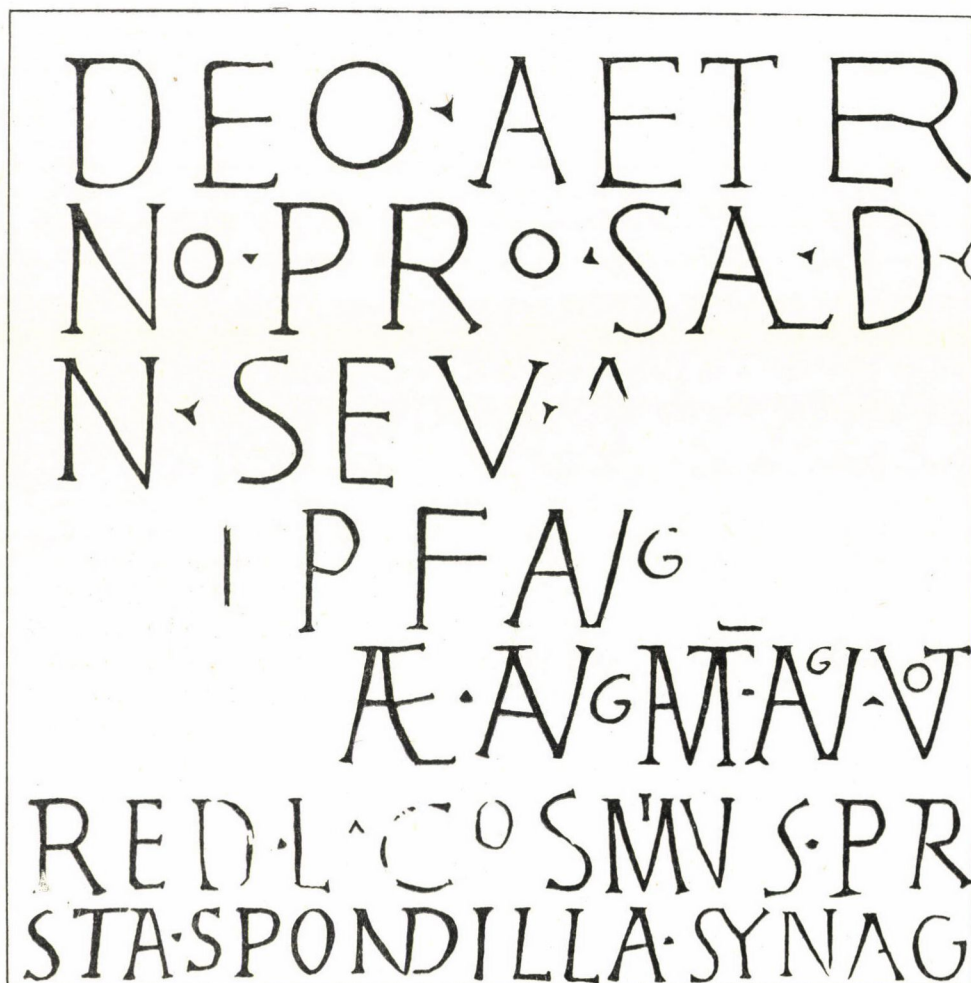 DEO · AETER
NO · PRO · SAL · D
N · SEV · A
I P F AVG
AE · AVG MAT · AVG · VOT
RED · L · COSMIVS · PR
STA · SPONDILLA · SYNAG